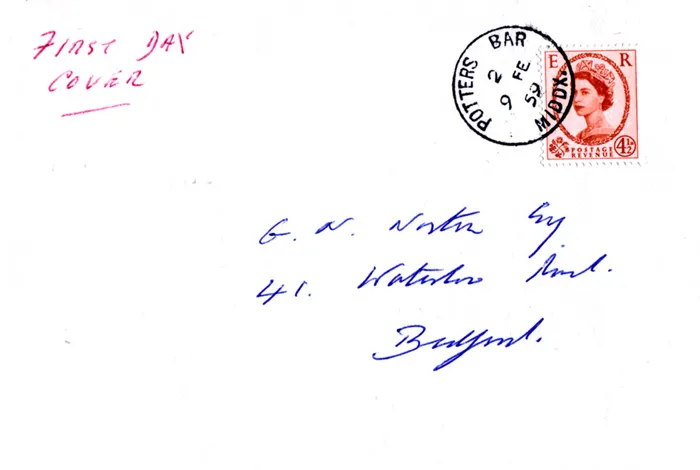 FIRST DAY
COVER
POTTERS BAR MIDDX.
2
9 FE 59
E R
POSTAGE
REVENUE 4½
G. N. Norton Esq
41. Waterloo Road.
Bedford.